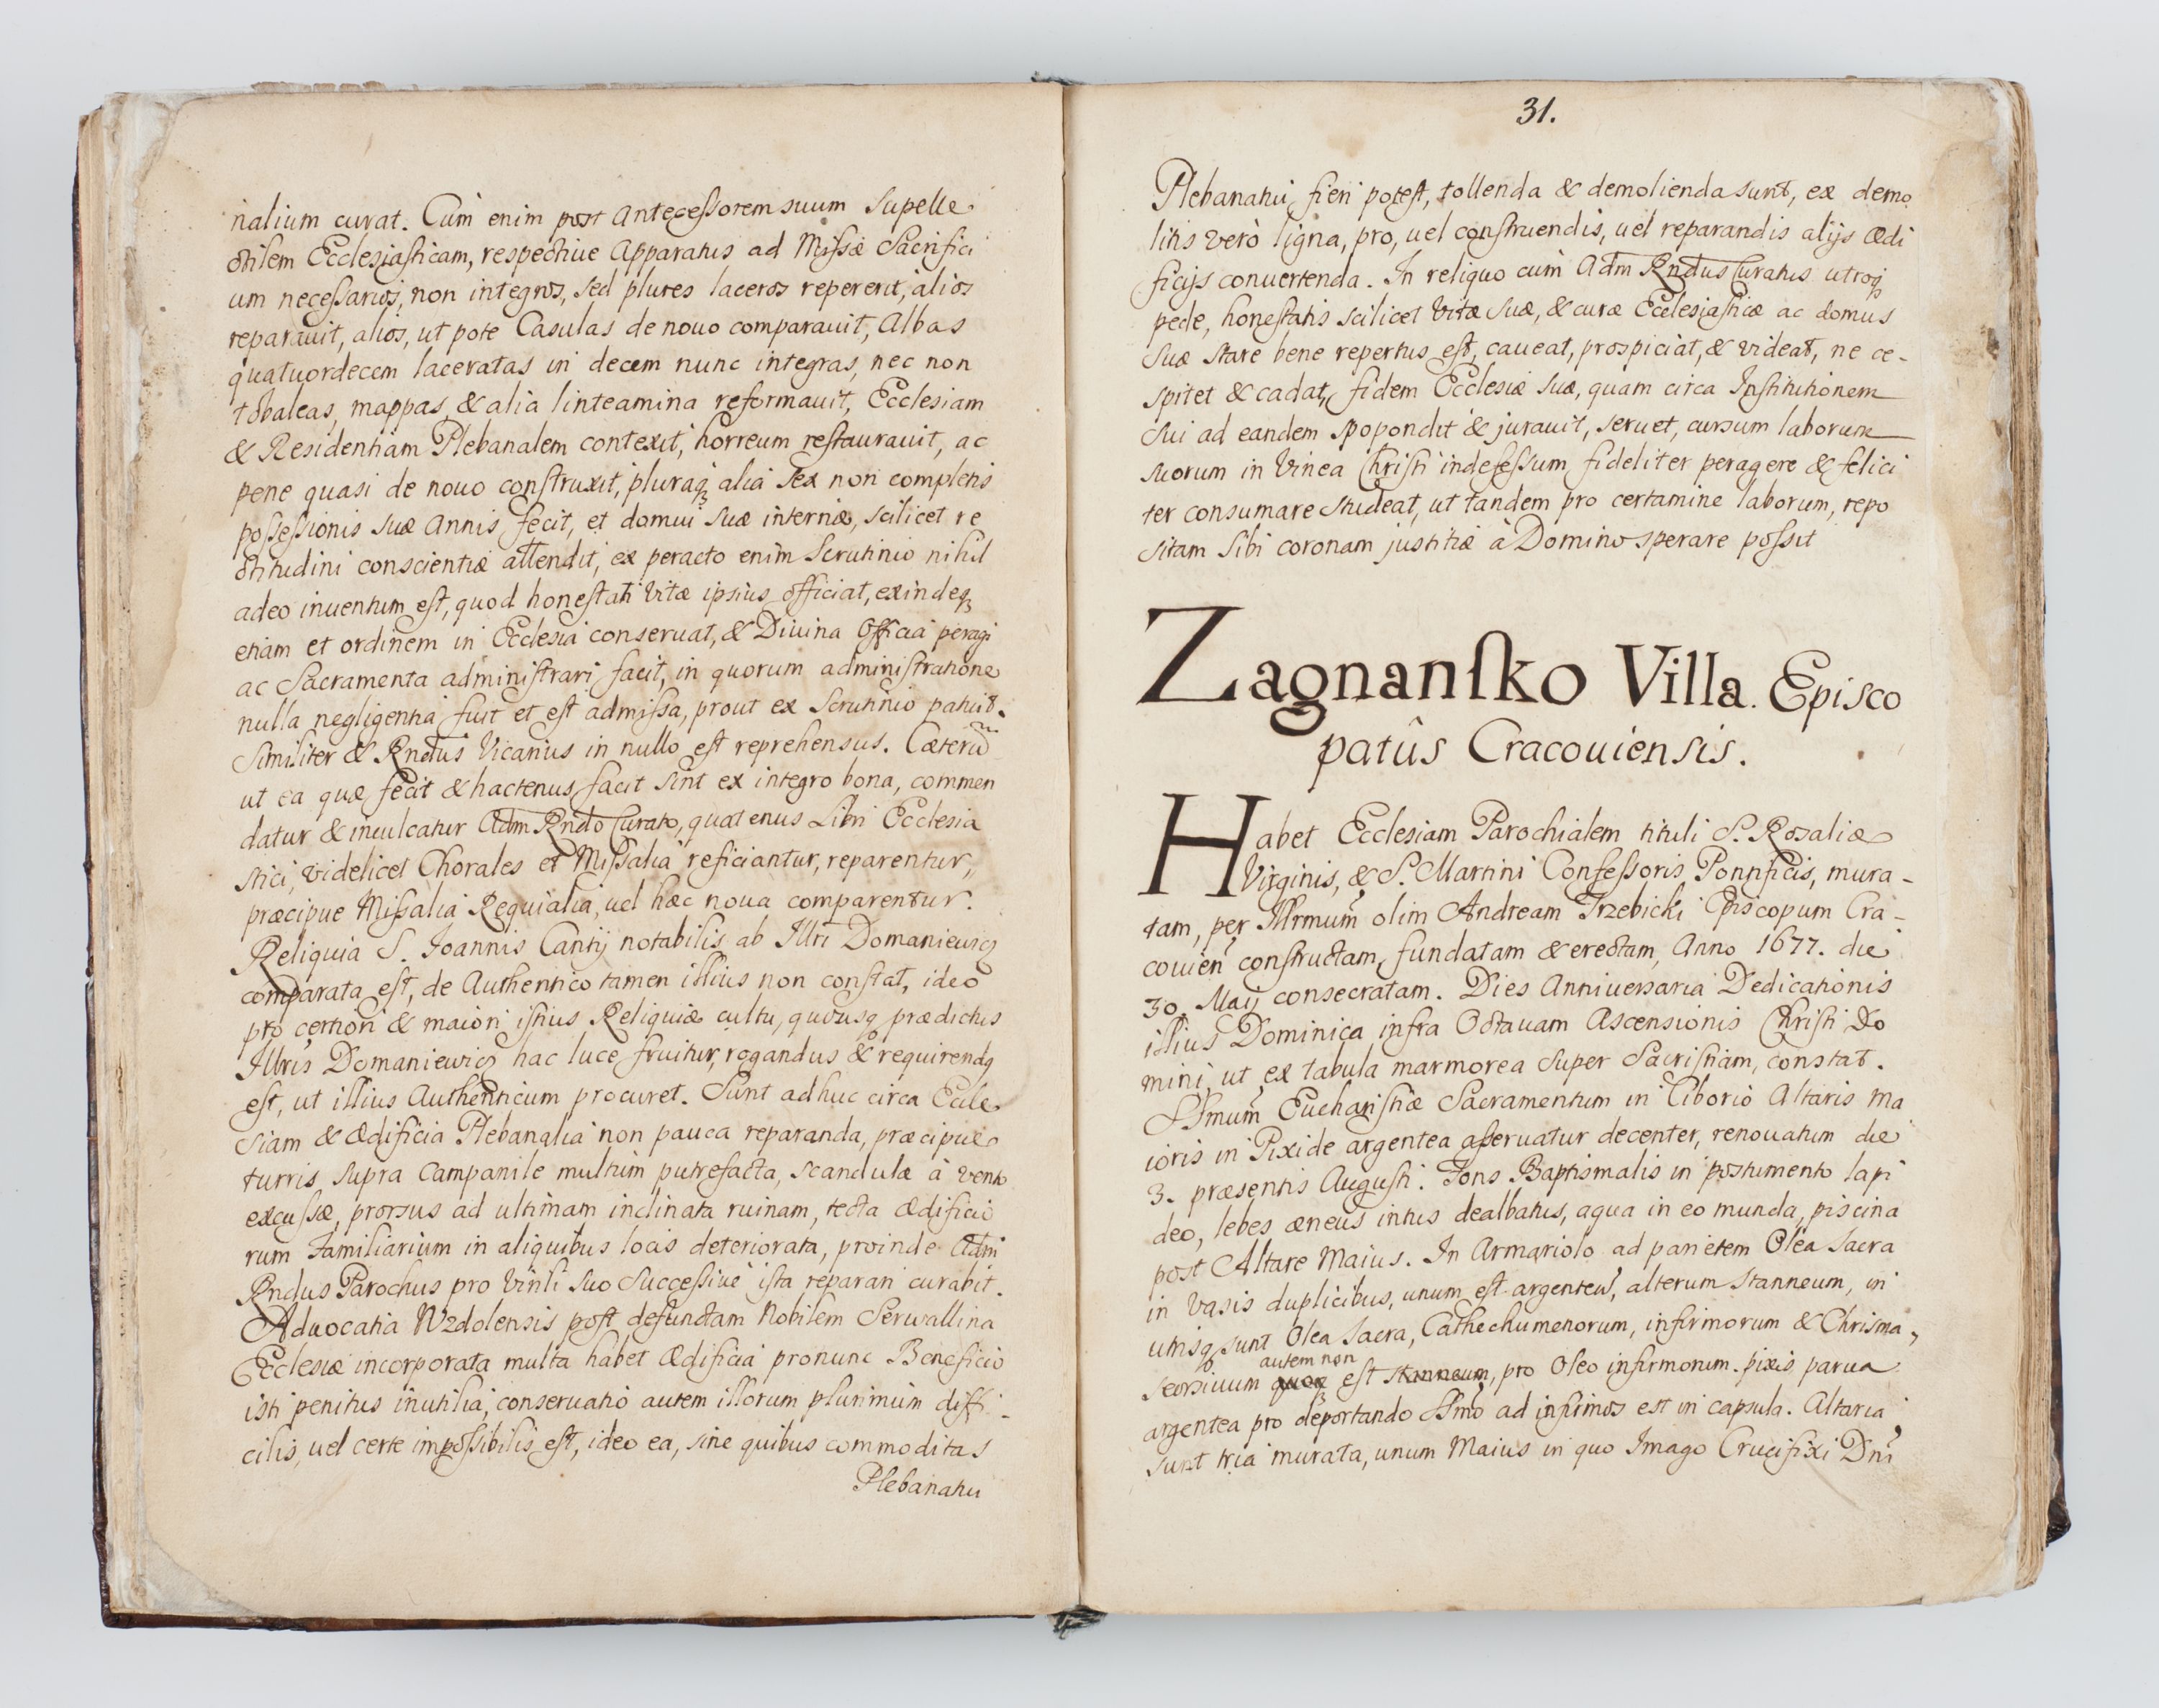 nalium curat. Cum enim post Antecessorem suum Supelle
ctilem Ecclesiasticam, respectiue Apparatus ad Missæ Sacrifici
um necessarios, non integros, sed plures laceros repererit, alios
reparauit, alios, ut pote Casulas de nouo comparauit, Albas
quatuordecem laceratas in decem nunc integras, nec non
tobaleas, mappas, & alia linteamina reformauit, Ecclesiam
& Residentiam Plebanalem contexit, horreum restaurauit, ac
pene quasi de nouo construxit, pluraq; alia sex non completis
possessionis suæ Annis fecit, et domui suæ internæ, scilicet re
ctitudini conscientiæ attendit, ex peracto enim Scrutinio nihil
adeo inuentum est, quod honestati Vitæ ipsius officiat, exindeq;
etiam et ordinem in Ecclesia conseruat, & Diuina Officia peragi
ac Sacramenta administrari facit, in quorum administratione
nulla negligentia fuit et est admissa, prout ex Scrutinio patuit.
Similiter & Rndus Vicarius in nullo est reprehensus. Cæterũ
ut ea quæ fecit & hactenus facit sint ex integro bona, commen
datur & inculcatur Adm Rndo Curato, quatenus Libri Ecclesia
stici, videlicet Chorales et Missalia reficiantur, reparentur,
præcipue Missalia Requialia, uel hæc noua comparentur.
Reliquia S. Joannis Cantij notabilis ab Illri Domaniewicz
comparata est, de Authentico tamen illius non constat, ideo
pro certiori & maiori istius Reliquiæ cultu, quousq; prædictus
Illris Domaniewicz hac luce fruitur, rogandus & requirendq
est, ut illius Authenticum procuret. Sunt adhuc circa Eccle
siam & Ædificia Plebanalia non pauca reparanda, præcipue
turris supra Campanile multum putrefacta, scandulæ à vento
excussæ, prorsus ad ultimam inclinata ruinam, tecta Ædificio
rum Familiarium in aliquibus locis deteriorata, proinde Adm
Rndus Parochus pro Virili suo Successiue ista reparari curabit.
Aduocatia Wzdolensis post defunctam Nobilem Serwallina
Ecclesiæ incorporata multa habet Ædificia pronunc Beneficio
isti penitus inutilia, conseruatio autem illorum plurimum diffi-
cilis, uel certe impossibilis est, ideo ea, sine quibus commoditas
Plebanatu
31.
Plebanatui fieri potest, tollenda & demolienda sunt, ex demo
litis verò ligna, pro, uel construendis, uel reparandis alijs Ædi
ficijs conuertenda. In reliquo cum Adm Rndus Curatus utroq;
pede, honestatis scilicet Vitæ Suæ, & curæ Ecclesiasticæ ac domus
suæ stare bene repertus est, caueat, prospiciat, & videat, ne ce-
spitet & cadat, fidem Ecclesiæ suæ, quam circa Institutionem
sui ad eandem spopondit & jurauit, seruet, cursum laborum
suorum in Vinea Christi indefessum fideliter peragere & felici
ter consumare studeat, ut tandem pro certamine laborum, repo
sitam sibi coronam justitiæ à Domino sperare possit
Zagnansko Villa. Episco
patûs Cracouiensis.
Habet Ecclesiam Parochialem tituli S. Rosaliæ
Virginis, & S. Martini Confessoris Pontificis, mura-
tam, per Illrmum olim Andream Trzebicki Episcopum Cra-
couien constructam, fundatam & erectam, Anno 1677. die
30 Maij consecratam. Dies Anniuersaria Dedicationis
illius Dominica infra Octauam Ascensionis Christi Do
mini, ut ex tabula marmorea super Sacristiam, constat.
SSmum Eucharistiæ Sacramentum in Ciborio Altaris Ma
ioris in Pixide argentea asseruatur decenter, renouatum die
3. præsentis Augusti. Fons Baptismalis in postumento lapi
deo, lebes æneus intus dealbatus, aqua in eo munda, piscina
post Altare Maius. In Armariolo ad parietem Olea Sacra
in Vasis duplicibus, unum est argenteũ, alterum stanneum, in
utrisq; sunt Olea Sacra, Cathechumenorum, infirmorum & Chrisma,
autem non
seorsiuum est stanneum, pro Oleo infirmorum. pixis parua
argentea pro deportando SSmo ad infirmos est in capsula. Altaria
sunt tria murata, unum Maius in quo Imago Crucifixi Dni